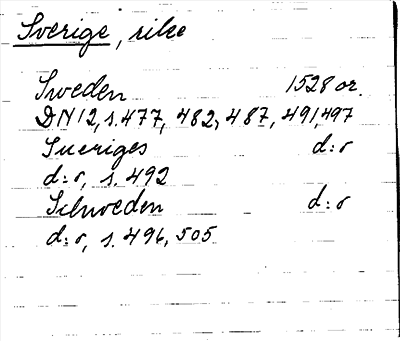 Sverige, rike
Sweden 1528 or.
DN12, s. 477, 482, 487, 491, 497
Sueriges d:o
d:o, s. 492
Schweden d:o
d:o, s. 496, 505